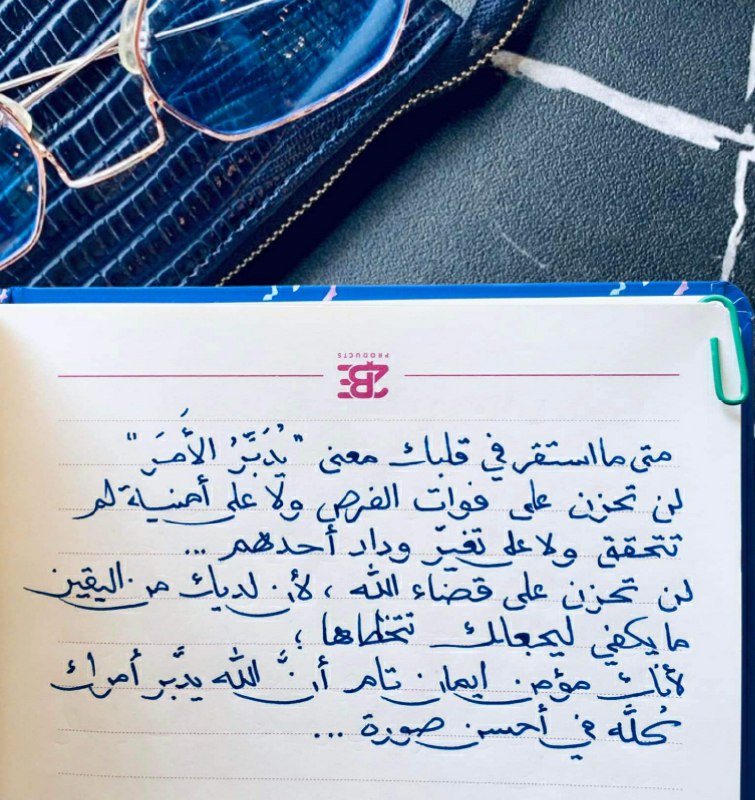 PRODUCTS
2BE
متى ما استقر في قلبك معنى "يُدَبِّرُ الأَمرَ"
لن تحزن على فوات الفرص ولا على أمنية لم
تتحقق ولا على تغيّر وداد أحدهم ...
لن تحزن على قضاء الله ، لأن لديك من اليقين
ما يكفي ليجعلك تتخطاها ؛
لأنك مؤمن إيمان تام أنَّ الله يدبَّر أمرك
كلَّه في أحسن صورة ...